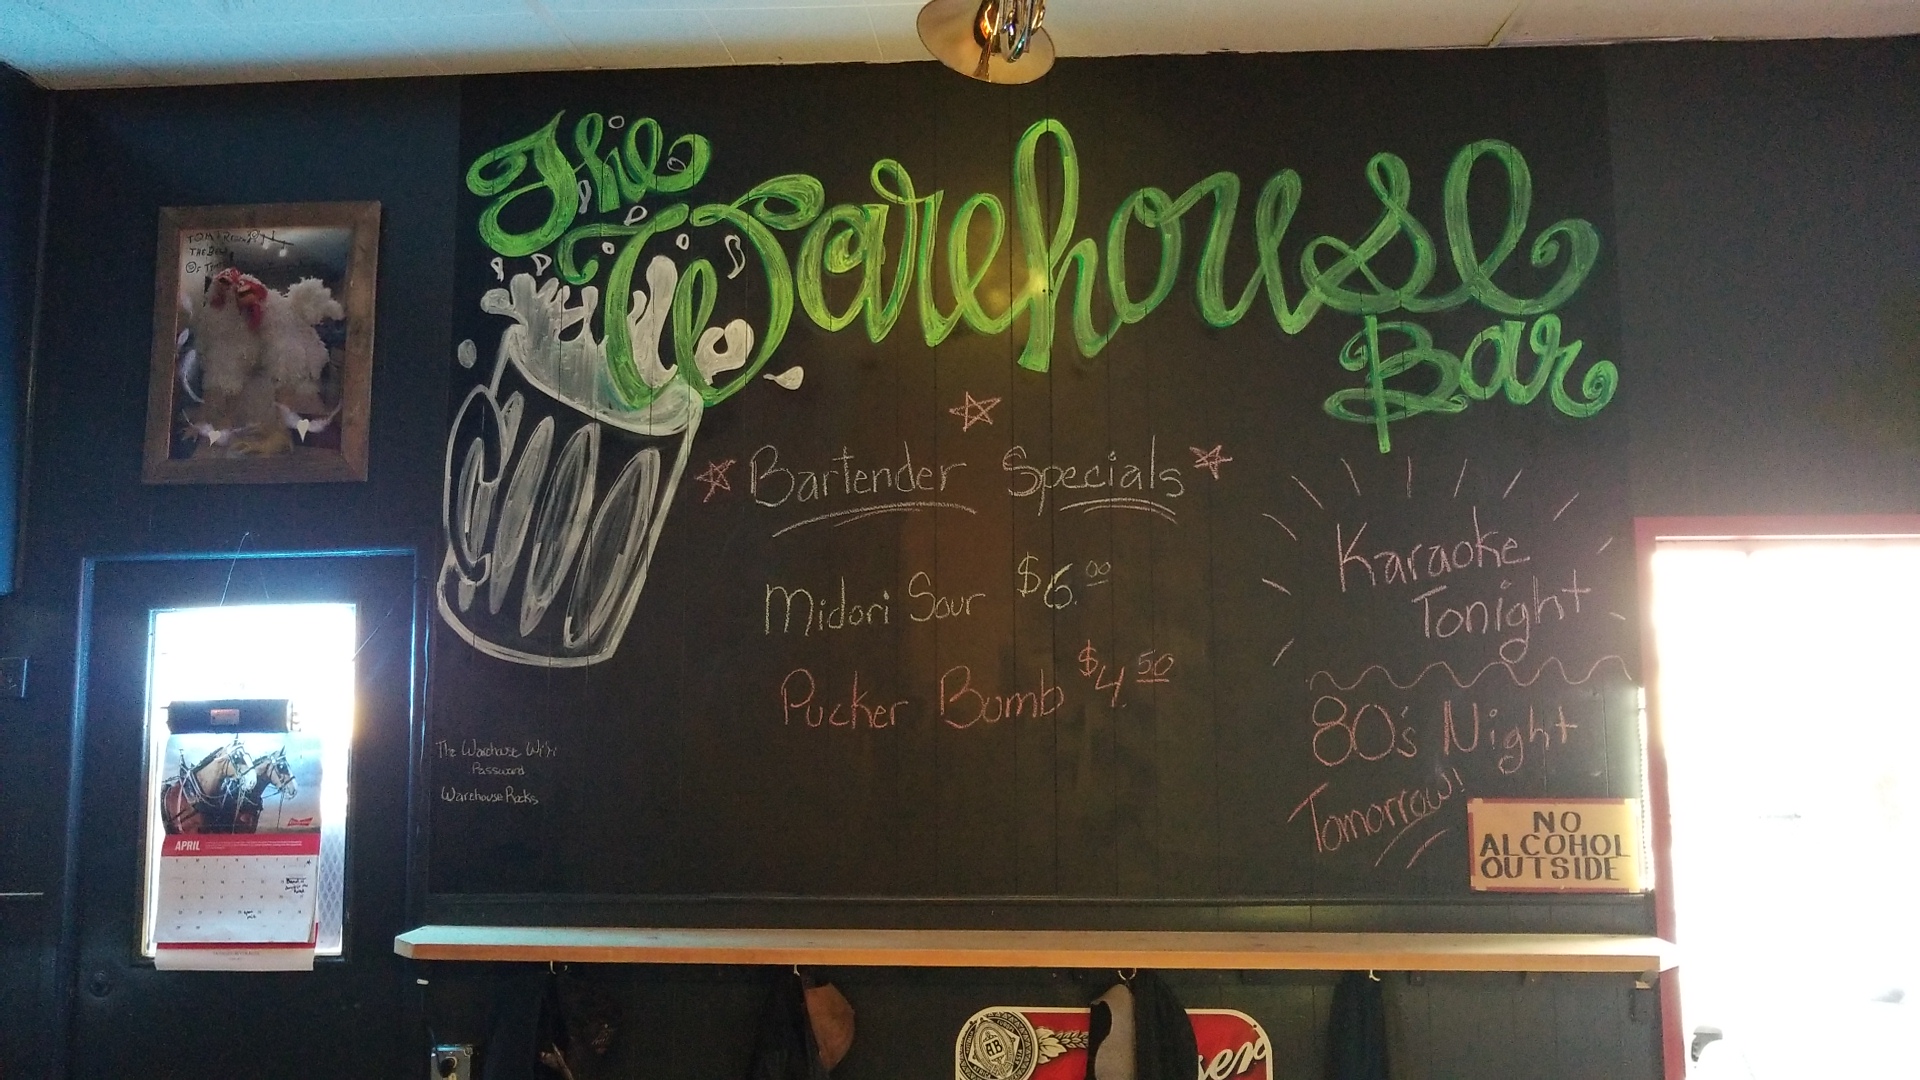 The
Warehouse
Bar
Bartender Specials
Midori Sour $6.00
Pucker Bomb $4.50
Karaoke
Tonight
80's Night
Tomorrow!
NO
ALCOHOL
OUTSIDE
The Warehouse Wifi
Password
WarehouseRocks
THE
OF
APRIL
AB
ser